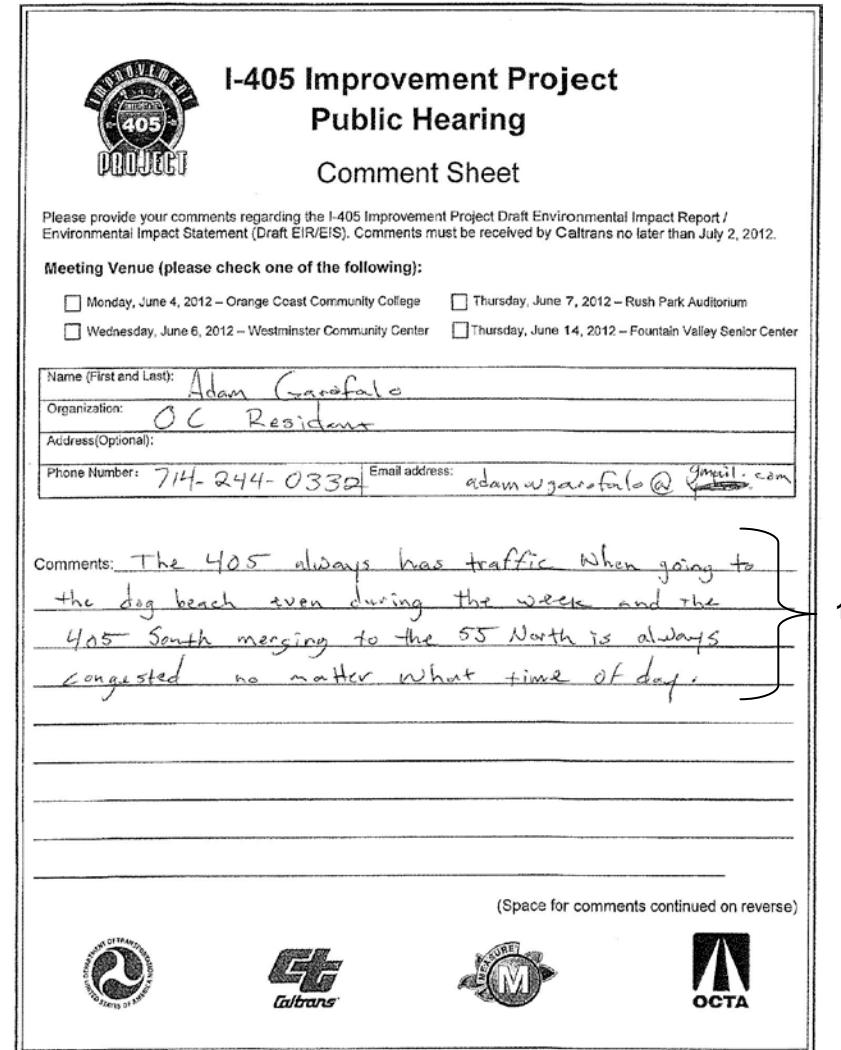 IMPROVEMENT
INTERSTATE
405
PROJECT
I-405 Improvement Project
Public Hearing
Comment Sheet
Please provide your comments regarding the I-405 Improvement Project Draft Environmental Impact Report /
Environmental Impact Statement (Draft EIR/EIS). Comments must be received by Caltrans no later than July 2, 2012.
Meeting Venue (please check one of the following):
Monday, June 4, 2012 – Orange Coast Community College
Thursday, June 7, 2012 – Rush Park Auditorium
Wednesday, June 6, 2012 – Westminster Community Center
Thursday, June 14, 2012 – Fountain Valley Senior Center
Name (First and Last): Adam Garofalo
Organization: OC Resident
Address(Optional):
Phone Number: 714-244-0332 Email address: adamwgarofalo@gmail.com
Comments: The 405 always has traffic When going to
the dog beach even during the week and the
405 South merging to the 55 North is always
congested no matter what time of day.
1
(Space for comments continued on reverse)
DEPARTMENT OF TRANSPORTATION
UNITED STATES OF AMERICA
Caltrans
MEASURE
M
OCTA